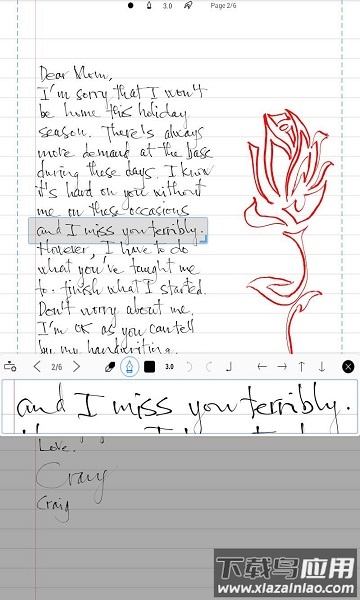 3.0 Page 2/6
Dear Mom,
I'm sorry that I won't
be home this holiday
season. There's always
more demand at the base
during these days. I know
it's hard on you without
me on these occasions
and I miss you terribly.
However, I have to do
what you've taught me
to - finish what I started.
Don't worry about me,
I'm OK as you can tell
by my handwriting.
2/6 3.0
and I miss you terribly.
Love.
Craig
Craig
下载鸟应用
www.xiazainiao.com